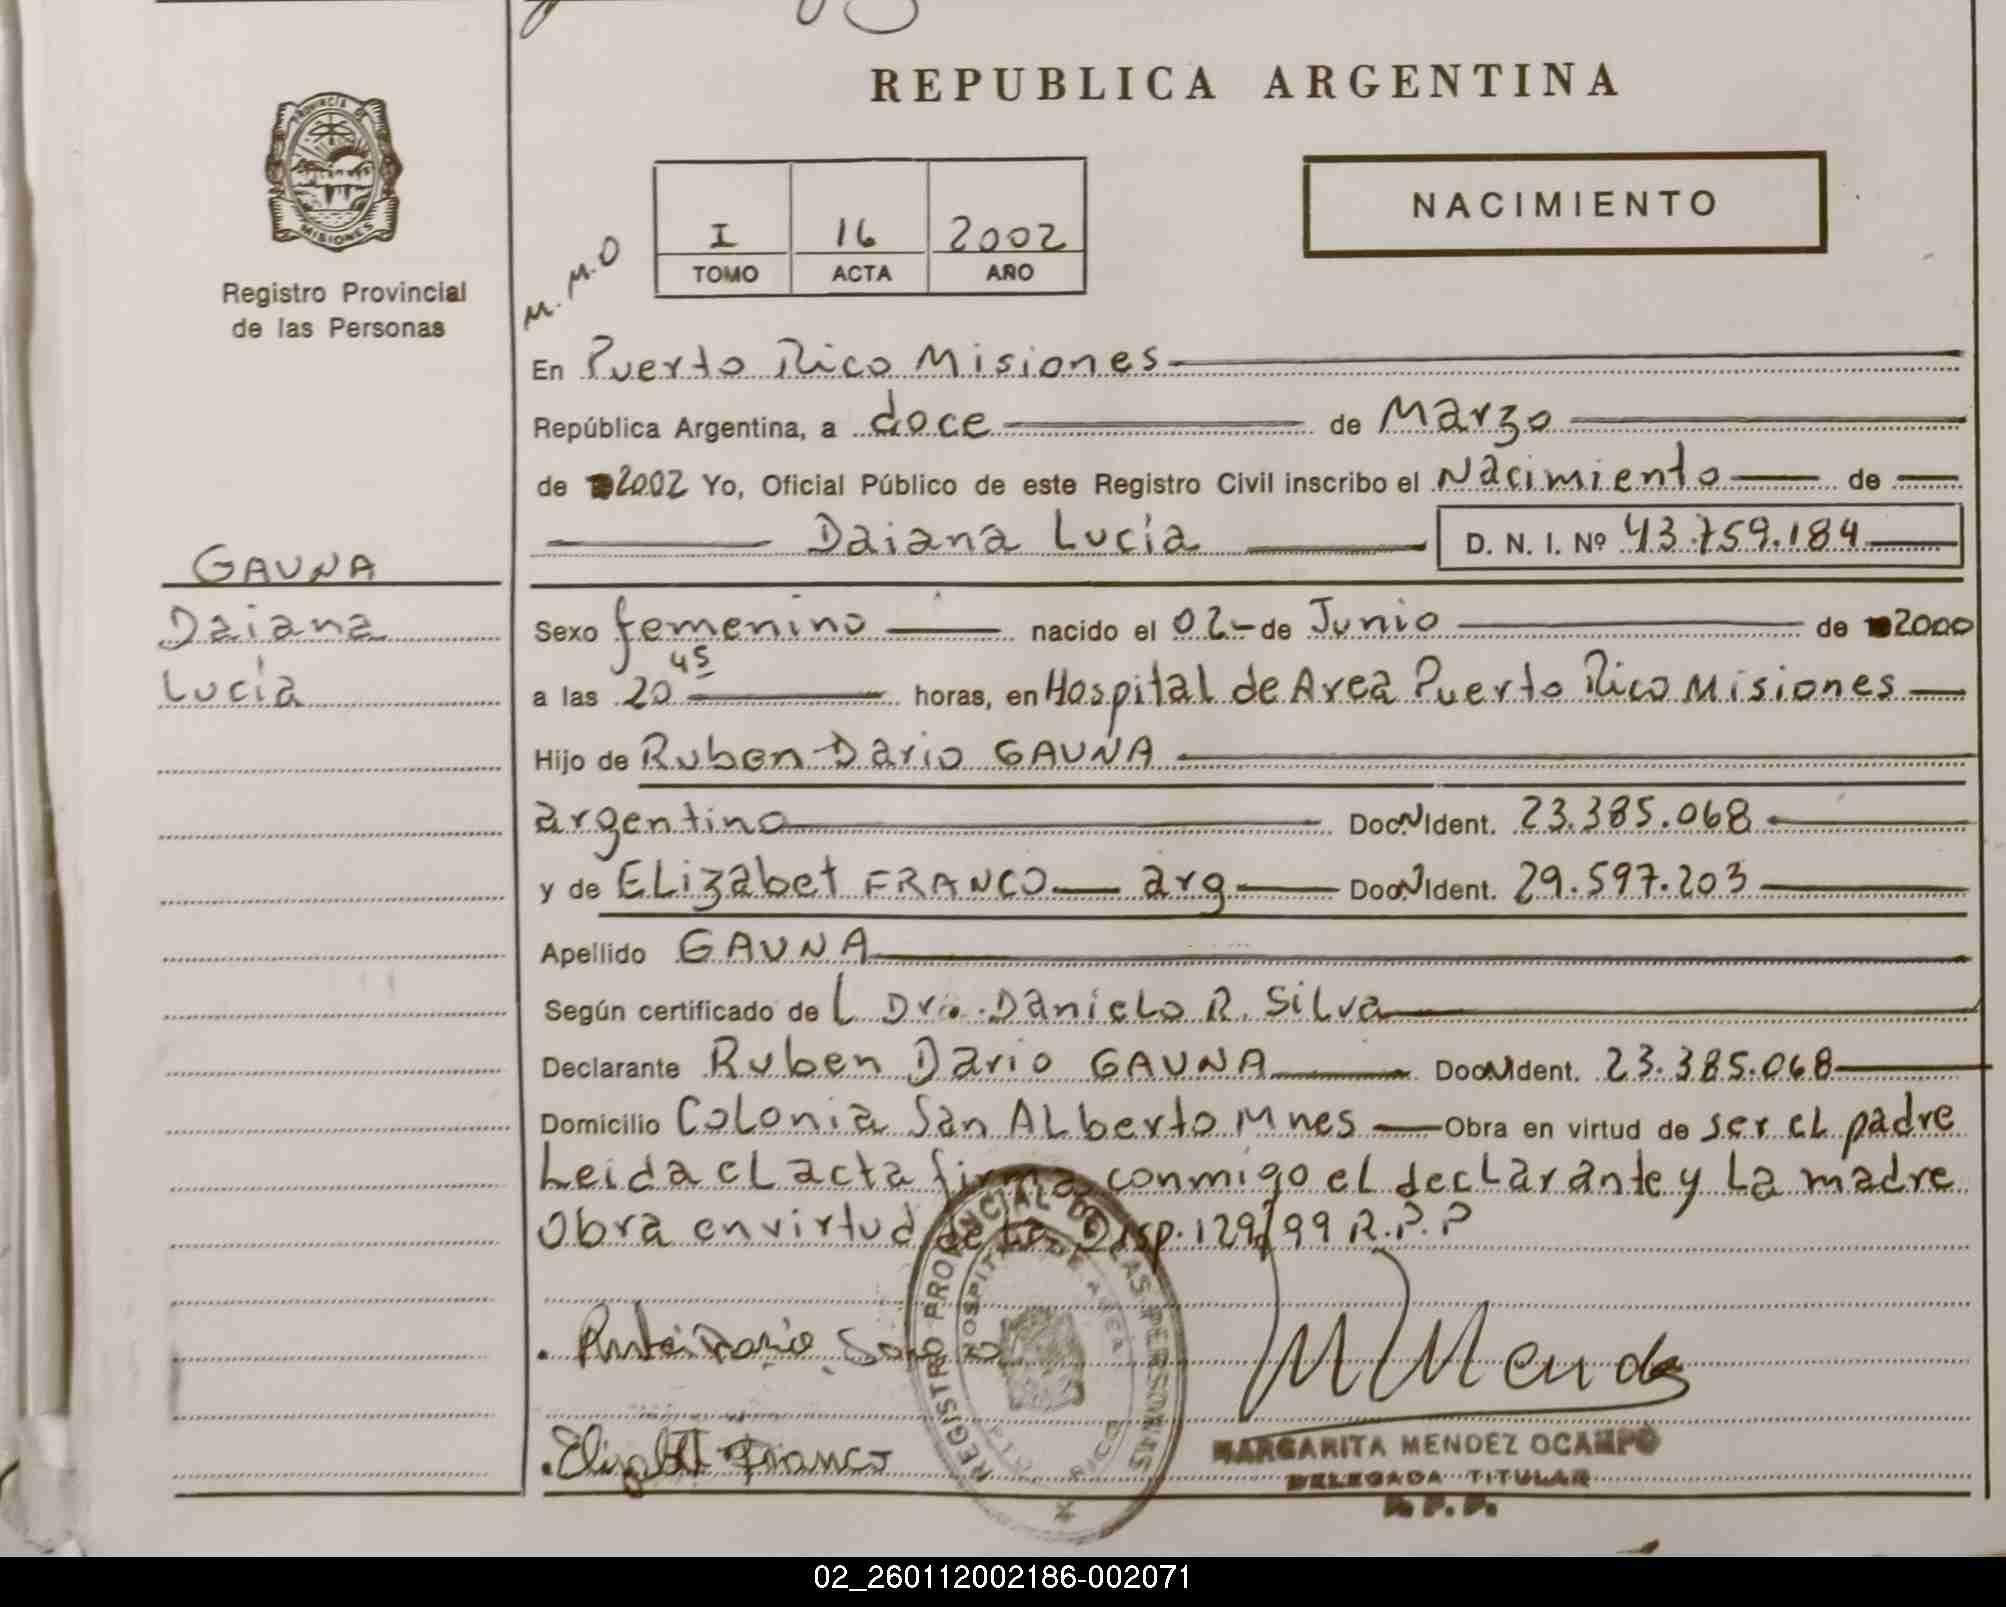 REPUBLICA ARGENTINA
PROVINCIA DE MISIONES
Registro Provincial
de las Personas
I 16 2002
TOMO ACTA AÑO
NACIMIENTO
M. M. O
En Puerto Rico Misiones
República Argentina, a doce de Marzo
de 2002 Yo, Oficial Público de este Registro Civil inscribo el Nacimiento de
Daiana Lucía D. N. I. Nº 43.759.184
GAUNA
Daiana
Lucía
Sexo femenino nacido el 02 de Junio de 2000
a las 20 45 horas, en Hospital de Area Puerto Rico Misiones
Hijo de Ruben Dario GAUNA
argentino Doc. N Ident. 23.385.068
y de ELizabet FRANCO arg Doc. N Ident. 29.597.203
Apellido GAUNA
Según certificado de L Dr. DanieLo R. SiLva
Declarante Ruben Dario GAUNA Doc. N Ident. 23.385.068
Domicilio CoLonia San ALberto Mnes Obra en virtud de ser eL padre
Leida eL acta firma conmigo el decLarante y La madre
Obra en virtud de La Disp. 129/99 R.P.P
REGISTRO PROVINCIAL DE LAS PERSONAS
HOSPITAL DE AREA
PTO. RICO
M Mendez
Elizabet Franco
MARGARITA MENDEZ OCAMPO
DELEGADA TITULAR
R. P. P.
02_260112002186-002071